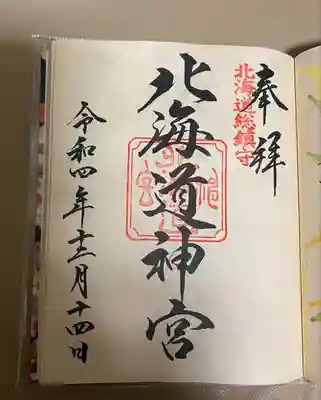 奉拝
北海道総鎮守
北海道神宮
令和四年十二月十四日